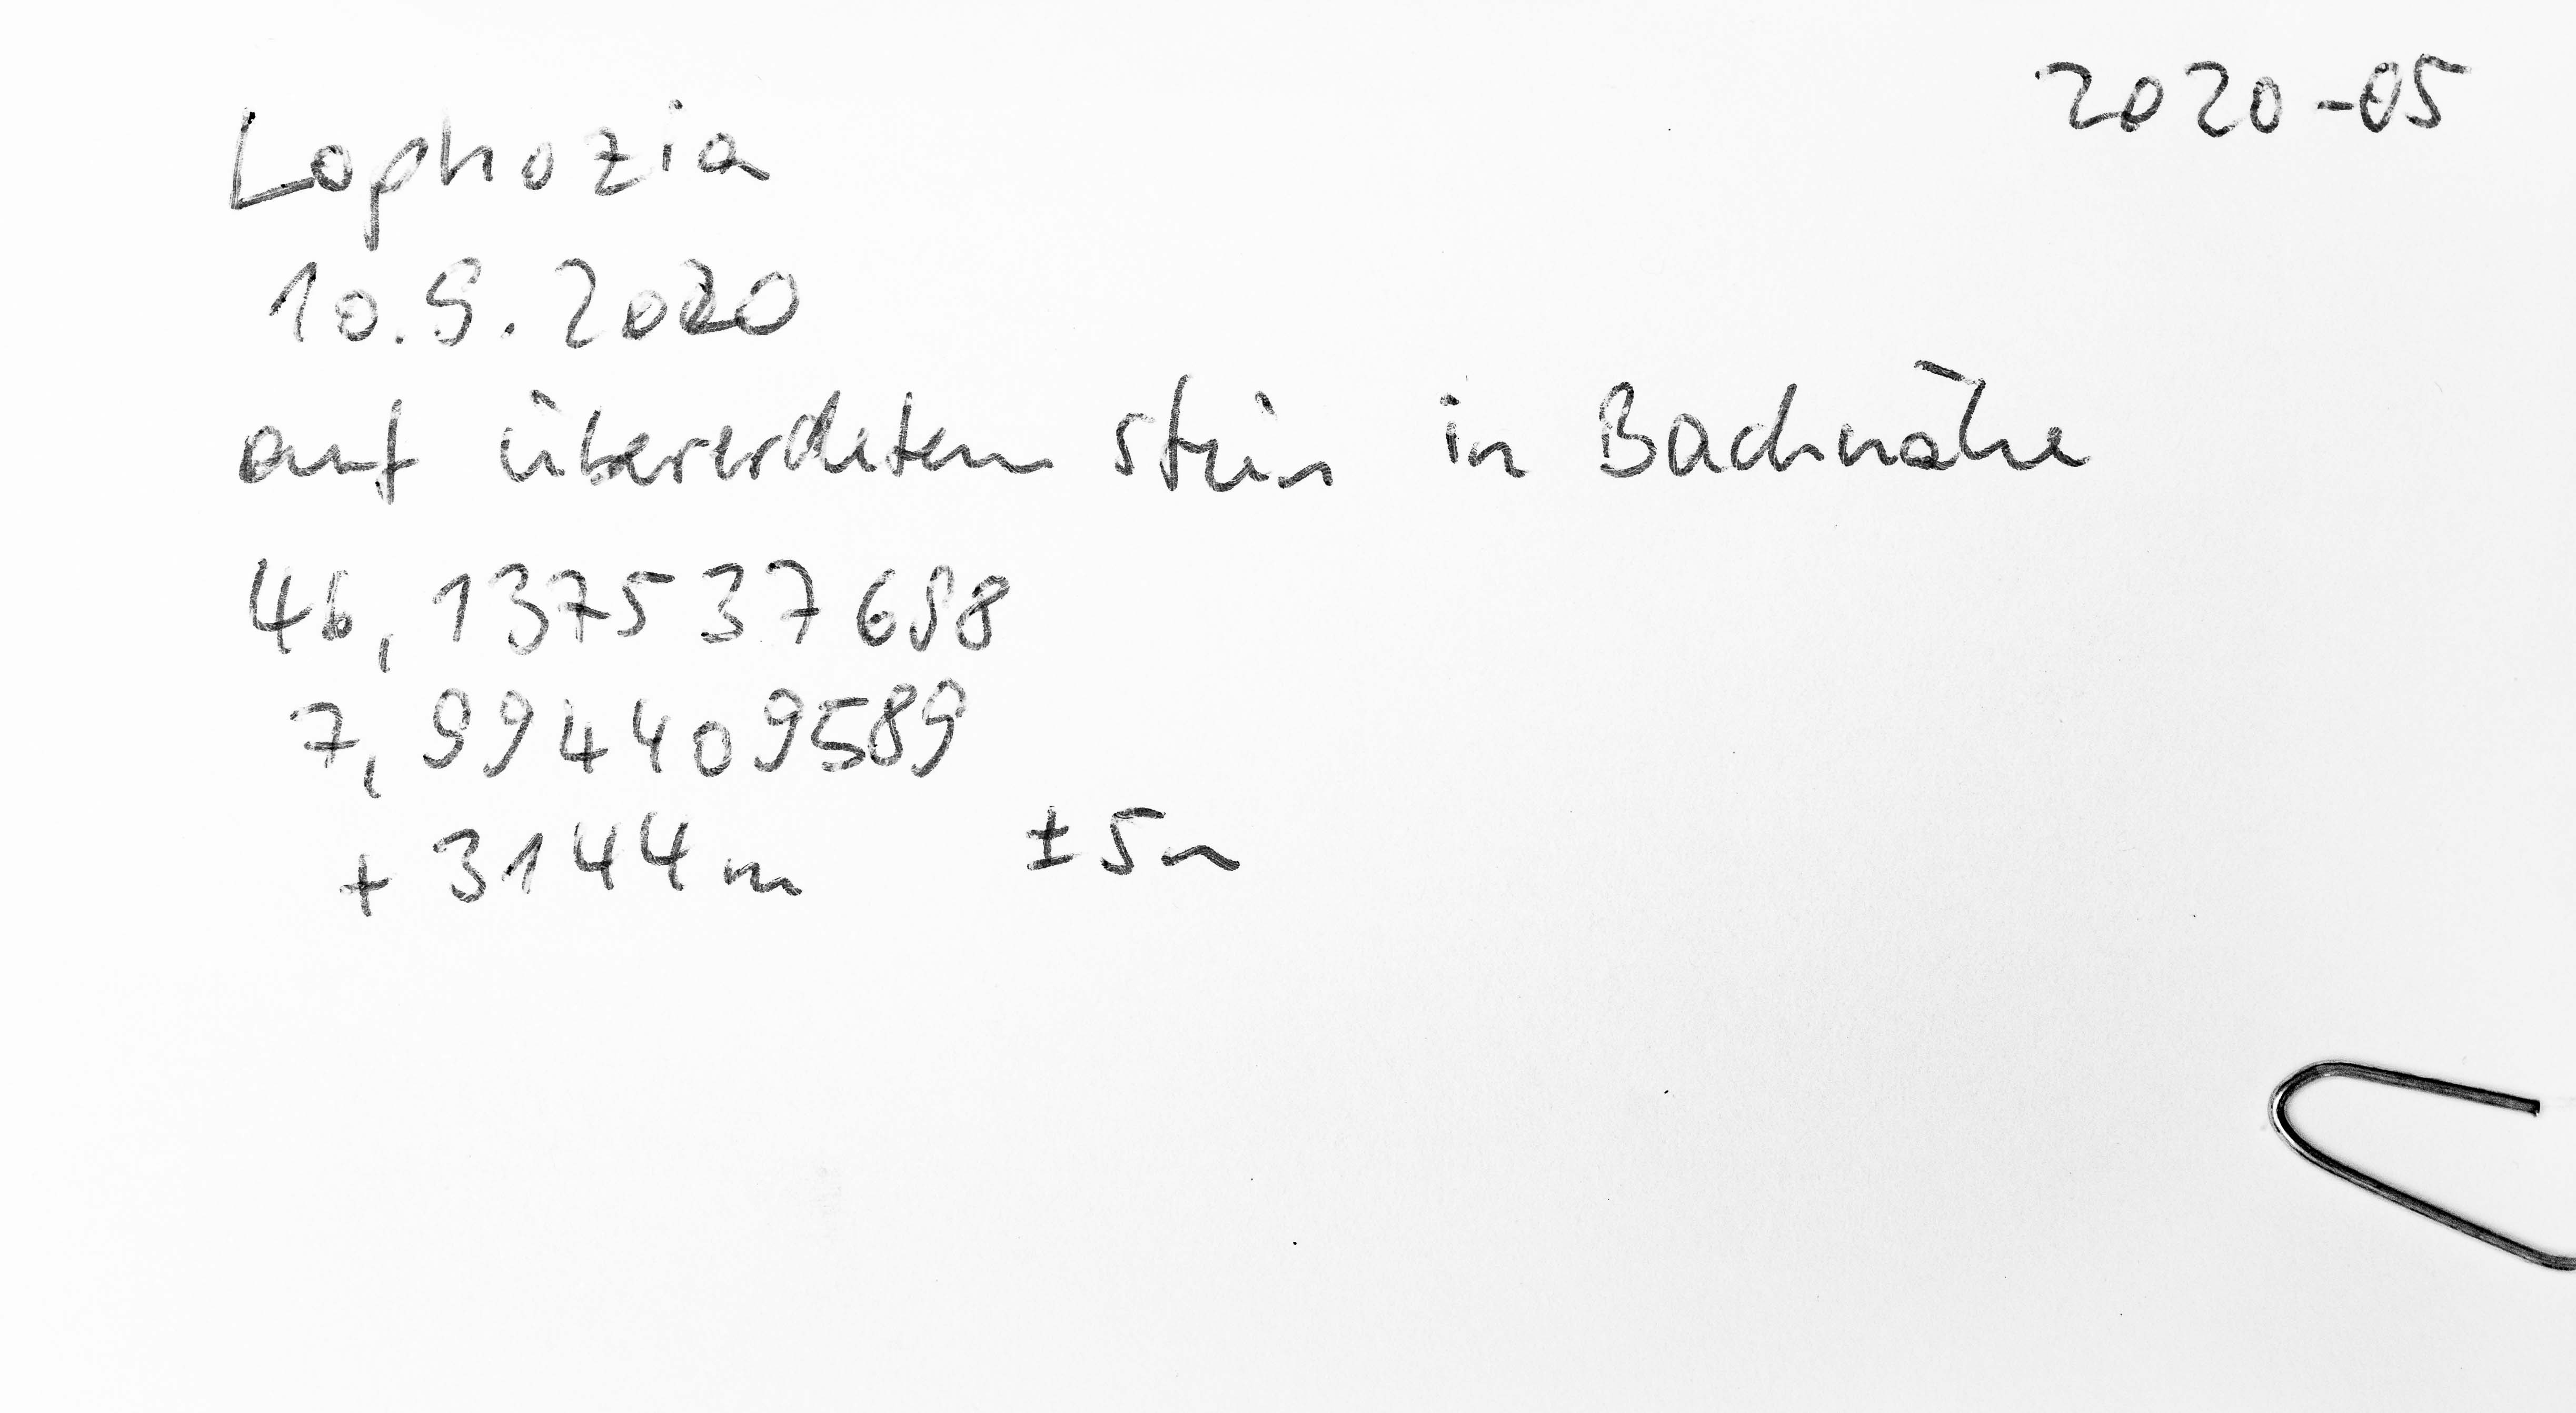 2020-05
Lophozia
10.9.2020
auf übererdetem Stein in Bachnähe
46,137537698
7,994409589
+ 3144 m ± 5m